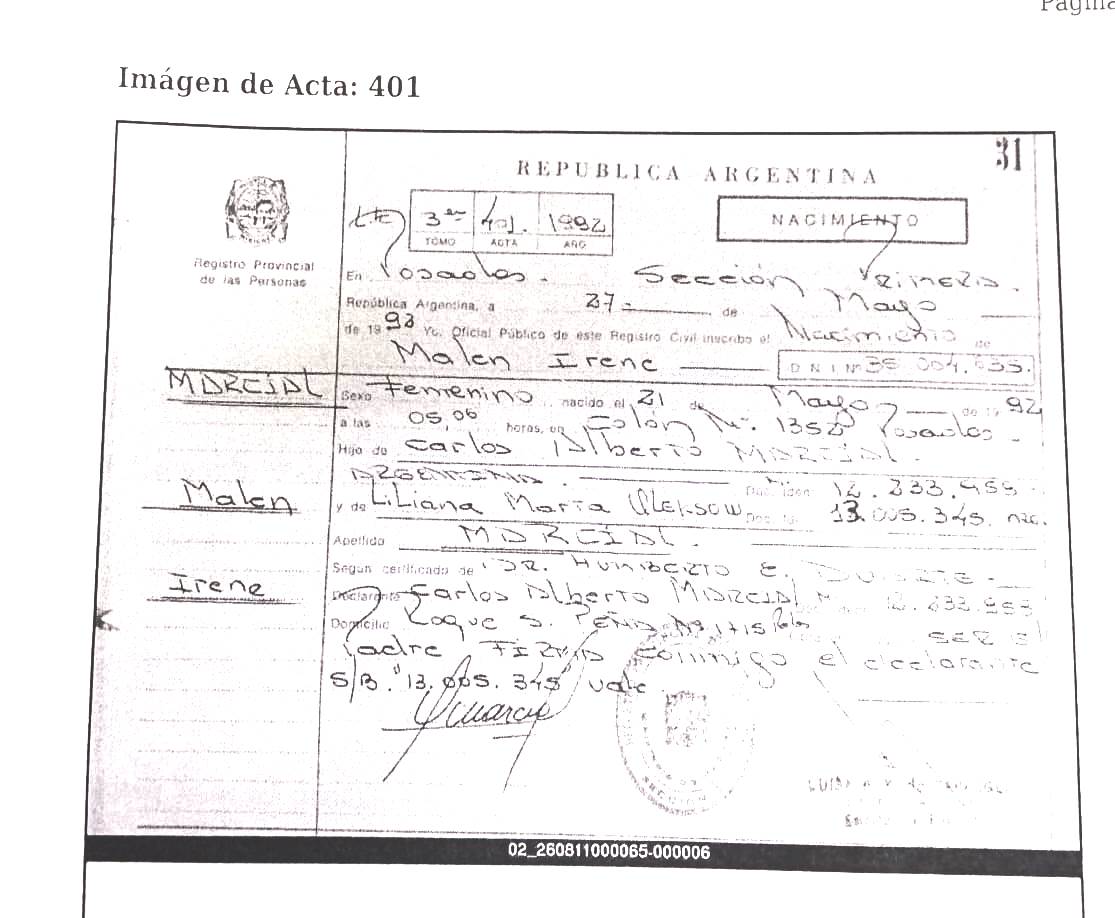 Página
Imágen de Acta: 401
31
REPUBLICA ARGENTINA
3er 401. 1992
TOMO ACTA AÑO
NACIMIENTO
Registro Provincial
de las Personas
En Posadas. Sección Primera.
República Argentina, a 27 de Mayo
de 19 92 Yo, Oficial Público de este Registro Civil inscribo el Nacimiento de
Malen Irene DNI Nº
MARCIAL
Sexo Femenino nacido el 21 de Mayo de 19 92
a las 05,06 horas, en Colón Nº. 1352 Posadas.
Hijo de Carlos Alberto MARCIAL.
ARGENTINA. Doc. Iden.
Malen
y de Liliana Marta 13.005.345. nac.
Apellido MARCIAL.
Según certificado de DR. HUMBERTO E. DUARTE
Irene
Declarante Carlos Alberto MARCIAL
Domicilio Roque S. PEÑA Nº SER el
Padre FIRMA conmigo el declarante
S/B. "13.005.345" vale.
02_260811000065-000006